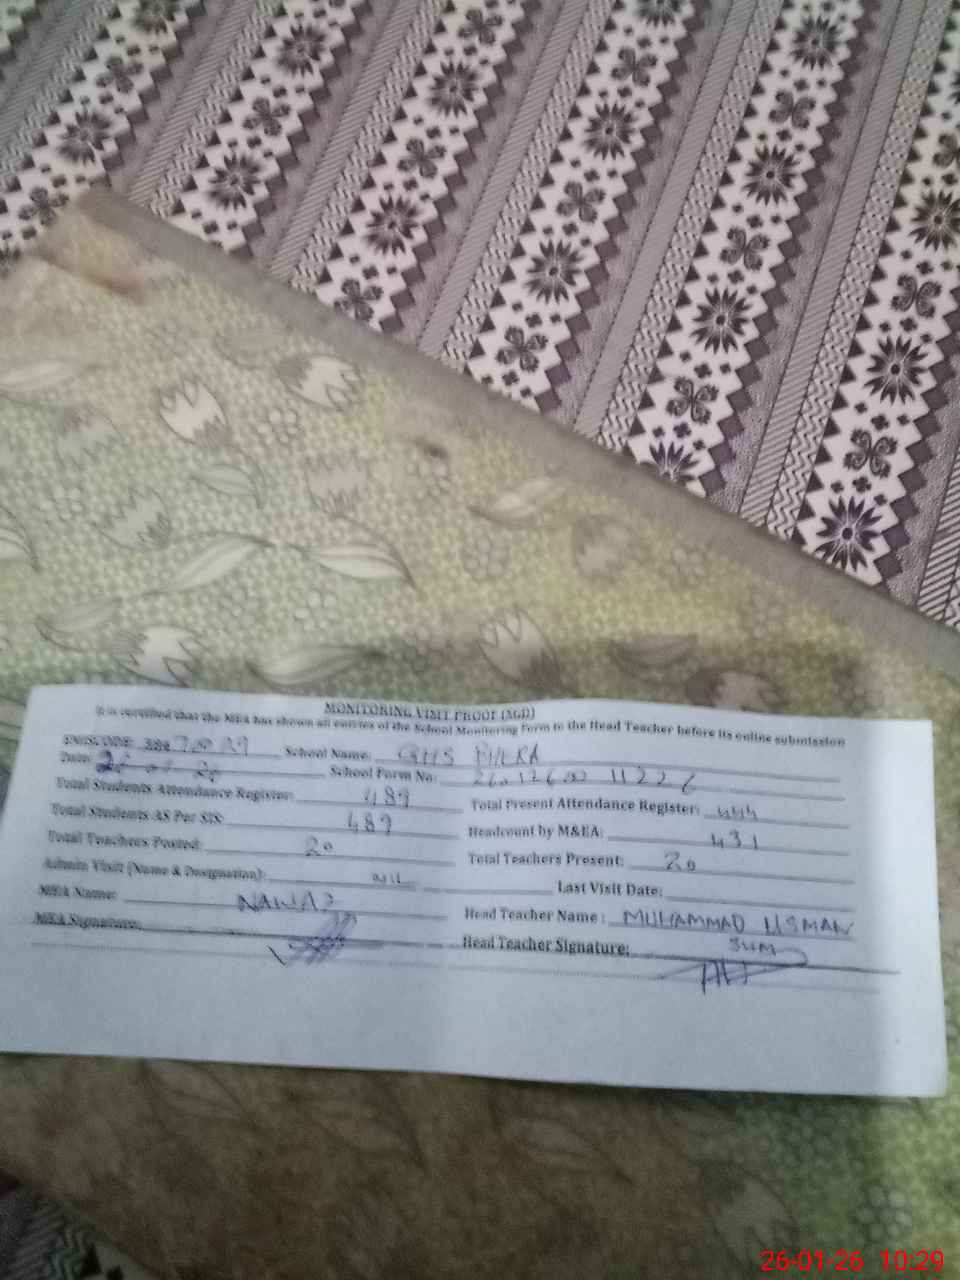 MONITORING VISIT PROOF (SGD)
It is certified that the MEA has shown all entries of the School Monitoring Form to the Head Teacher before its online submission
EMISCODE: School Name: GHS
Date: School Form No:
Total Students Attendance Register: 489 Total Present Attendance Register: 444
Total Students AS Per SIS: 489 Headcount by M&EA: 431
Total Teachers Posted: 20 Total Teachers Present: 20
Admin Visit (Name & Designation): Nil Last Visit Date:
MEA Name: NAWAZ Head Teacher Name: MUHAMMAD USMAN
MEA Signature: Head Teacher Signature:
26-01-26 10:29